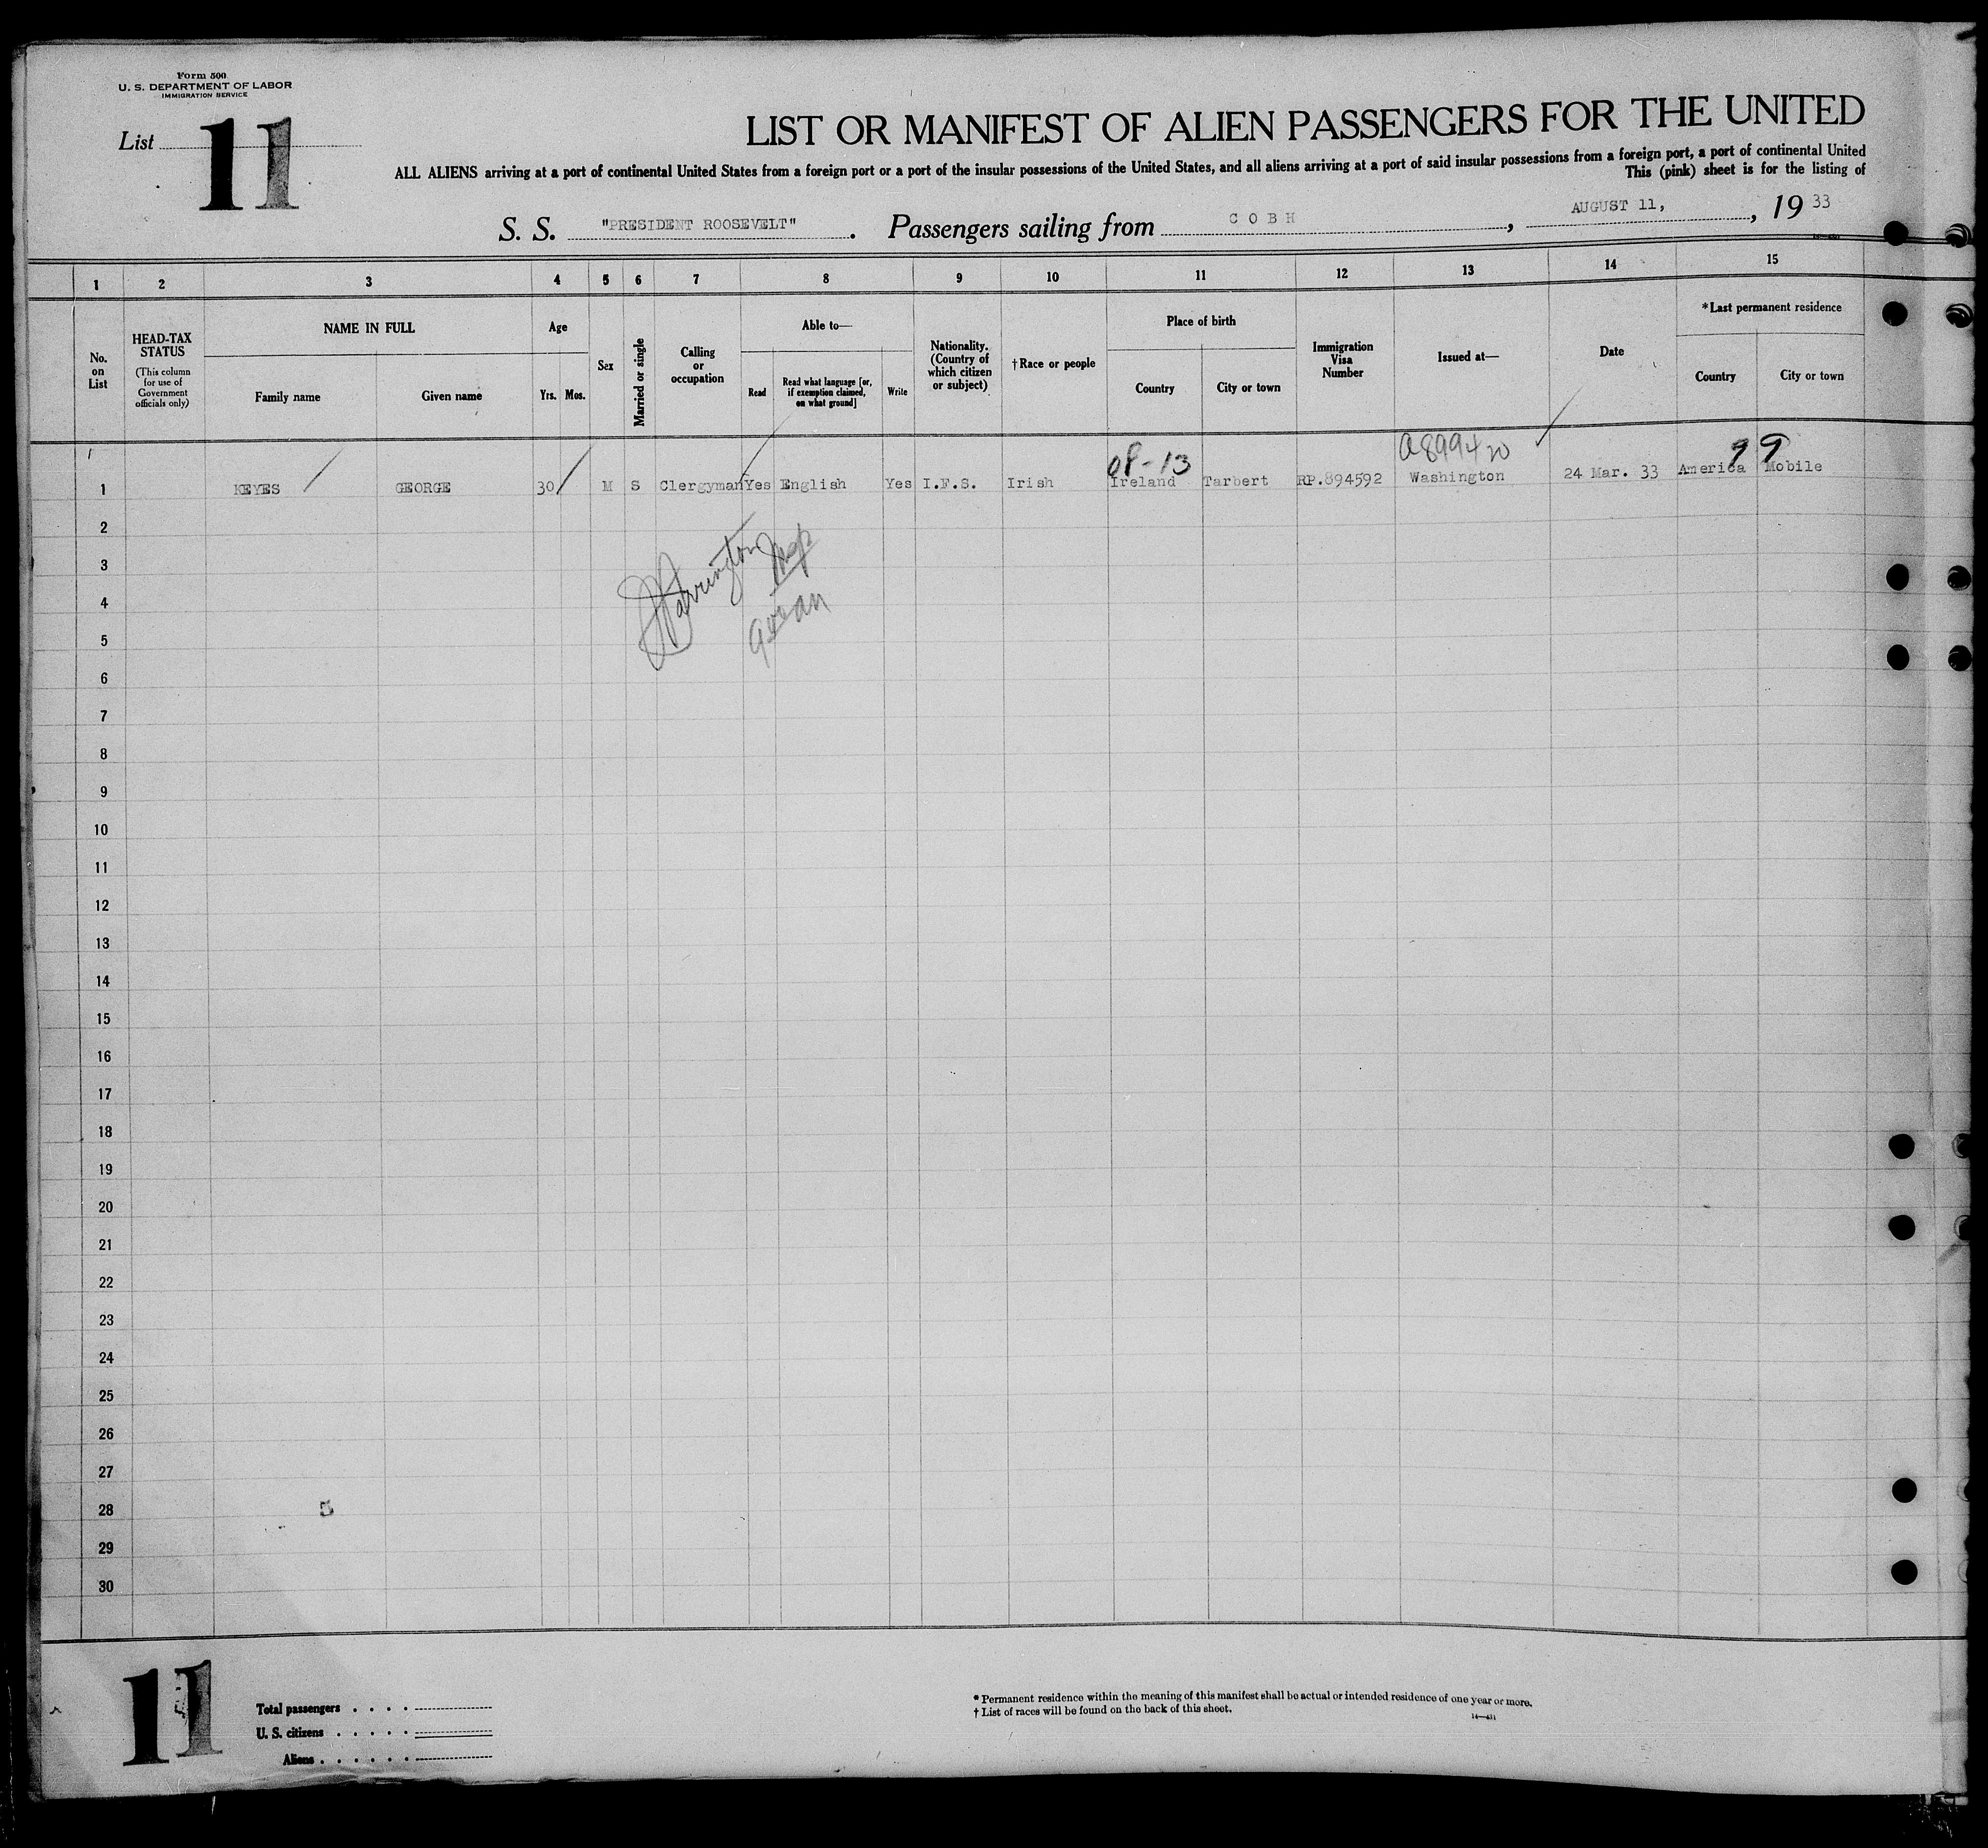 Form 500
U. S. DEPARTMENT OF LABOR
IMMIGRATION SERVICE
List 11
LIST OR MANIFEST OF ALIEN PASSENGERS FOR THE UNITED
ALL ALIENS arriving at a port of continental United States from a foreign port or a port of the insular possessions of the United States, and all aliens arriving at a port of said insular possessions from a foreign port, a port of continental United
This (pink) sheet is for the listing of
S. S. "PRESIDENT ROOSEVELT". Passengers sailing from COBH, AUGUST 11, , 19 33
1 2 3 4 5 6 7 8 9 10 11 12 13 14 15
No. on List
HEAD-TAX STATUS
(This column for use of Government officials only)
NAME IN FULL
Family name
Given name
Age
Yrs. Mos.
Sex
Married or single
Calling or occupation
Able to—
Read
Read what language [or, if exemption claimed, on what ground]
Write
Nationality. (Country of which citizen or subject)
†Race or people
Place of birth
Country
City or town
Immigration Visa Number
Issued at—
Date
*Last permanent residence
Country
City or town
08-13
A899420
99
1 KEYES GEORGE 30 M S Clergyman Yes English Yes I.F.S. Irish Ireland Tarbert RP.894592 Washington 24 Mar. 33 America Mobile
2
3
4
5
6
7
8
9
10
11
12
13
14
15
16
17
18
19
20
21
22
23
24
25
26
27
28
29
30
11
Total passengers
U. S. citizens
Aliens
* Permanent residence within the meaning of this manifest shall be actual or intended residence of one year or more.
† List of races will be found on the back of this sheet.
14—431